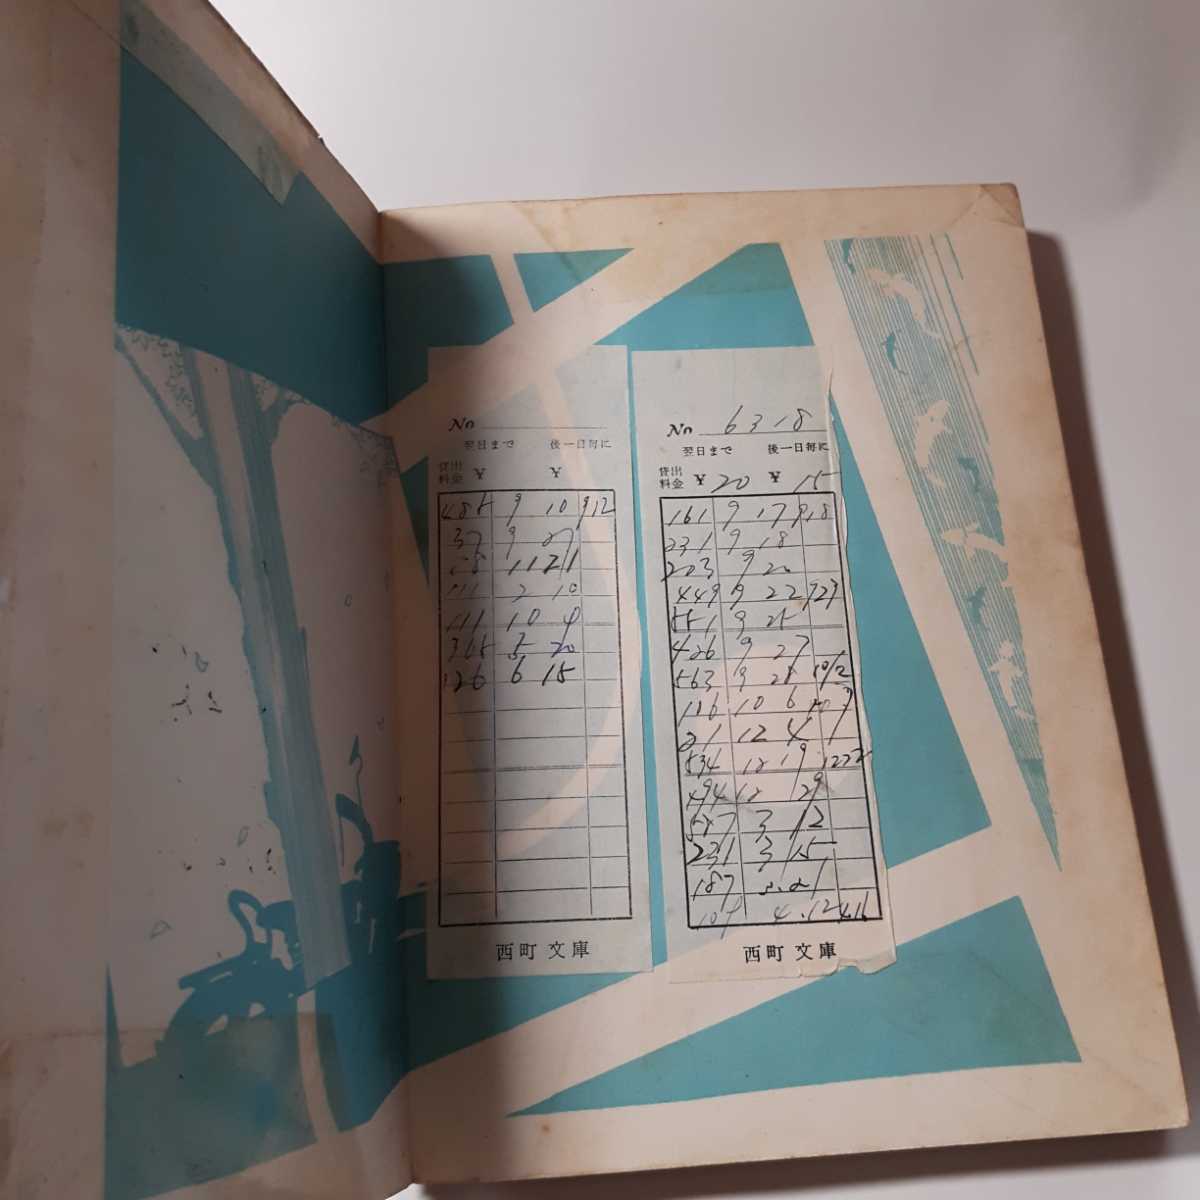 No
翌日まで 後一日毎に
貸出料金 ¥ ¥
485 9 10 9 12
37 9 27
11 21
2 10
111 10 4
365 5 20
126 6 15
西町文庫
No 6318
翌日まで 後一日毎に
貸出料金 ¥ 20 ¥ 15
161 9 17 9 18
231 9 18
203 9 20
449 9 22 9 23
551 9 25
426 9 27
563 9 28 10/2
116 10 6
21 12 4
534 12 19 12 22
494 12 29
587 3 12
231 3 15
187 3.21
4.12 4.16
西町文庫